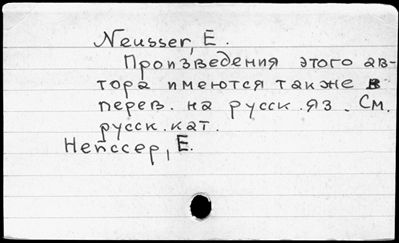 Neusser, E.
Произведения этого ав-
тора имеются также в
перев. на русск. яз. См.
русск. кат.
Нейссер, Е.